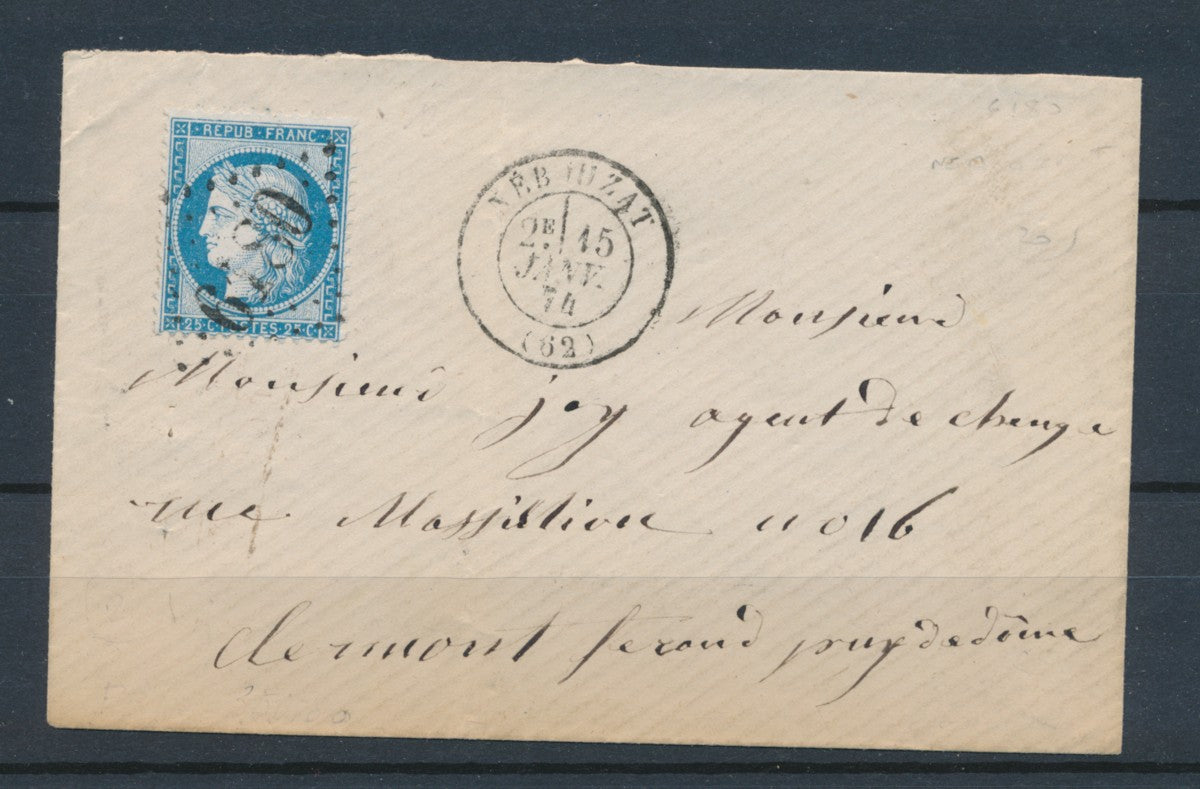 REPUB · FRANC
25 C · POSTES · 25 C
6180
NÉBOUZAT
2E 15
JANV.
74
(62)
Monsieur
Monsieur joy agent de change
rue Massillion no 16
clermont ferand puy de dôme
6180